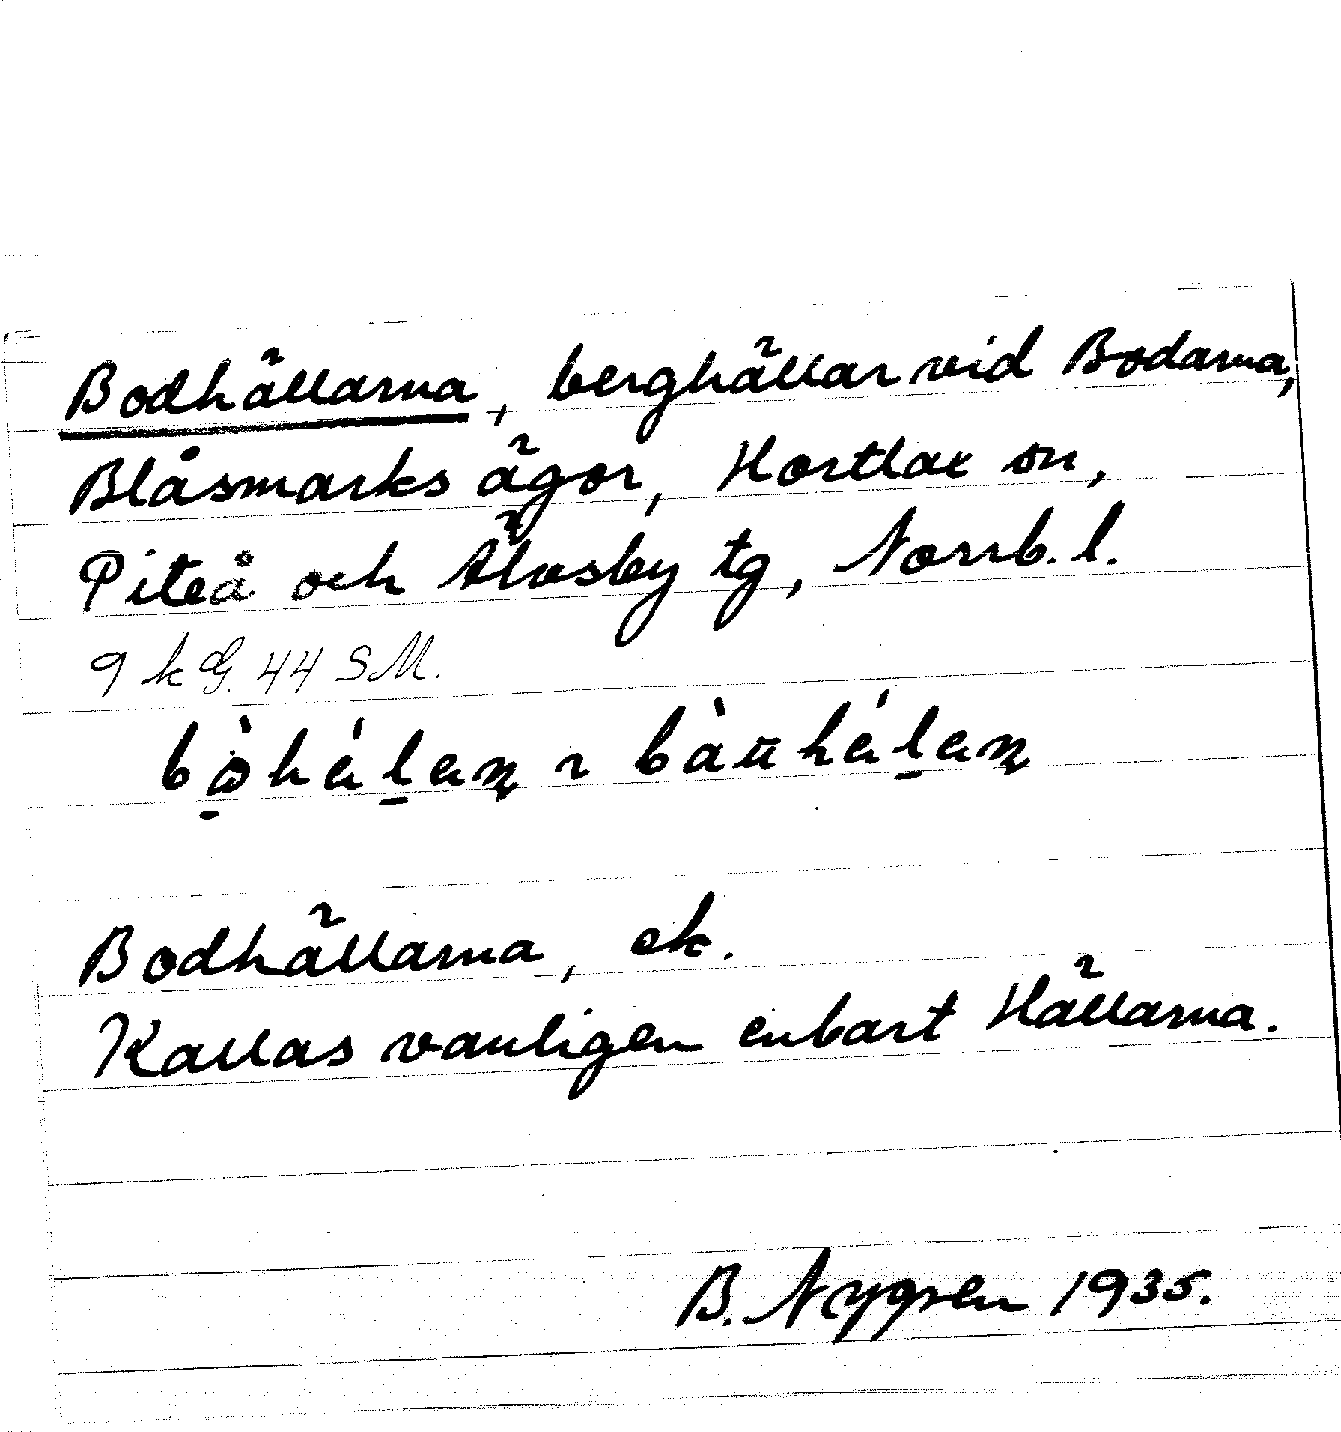 Bodhällarna, berghällar vid Bodarna,
Blåsmarks ägor, Hortlax sn,
Piteå och Älvsby tg, Norrb. l.
9 k G. 44 SM.
Bodhällarna, ek.
Kallas vanligen enbart Hällarna.
B. Nygren 1935.